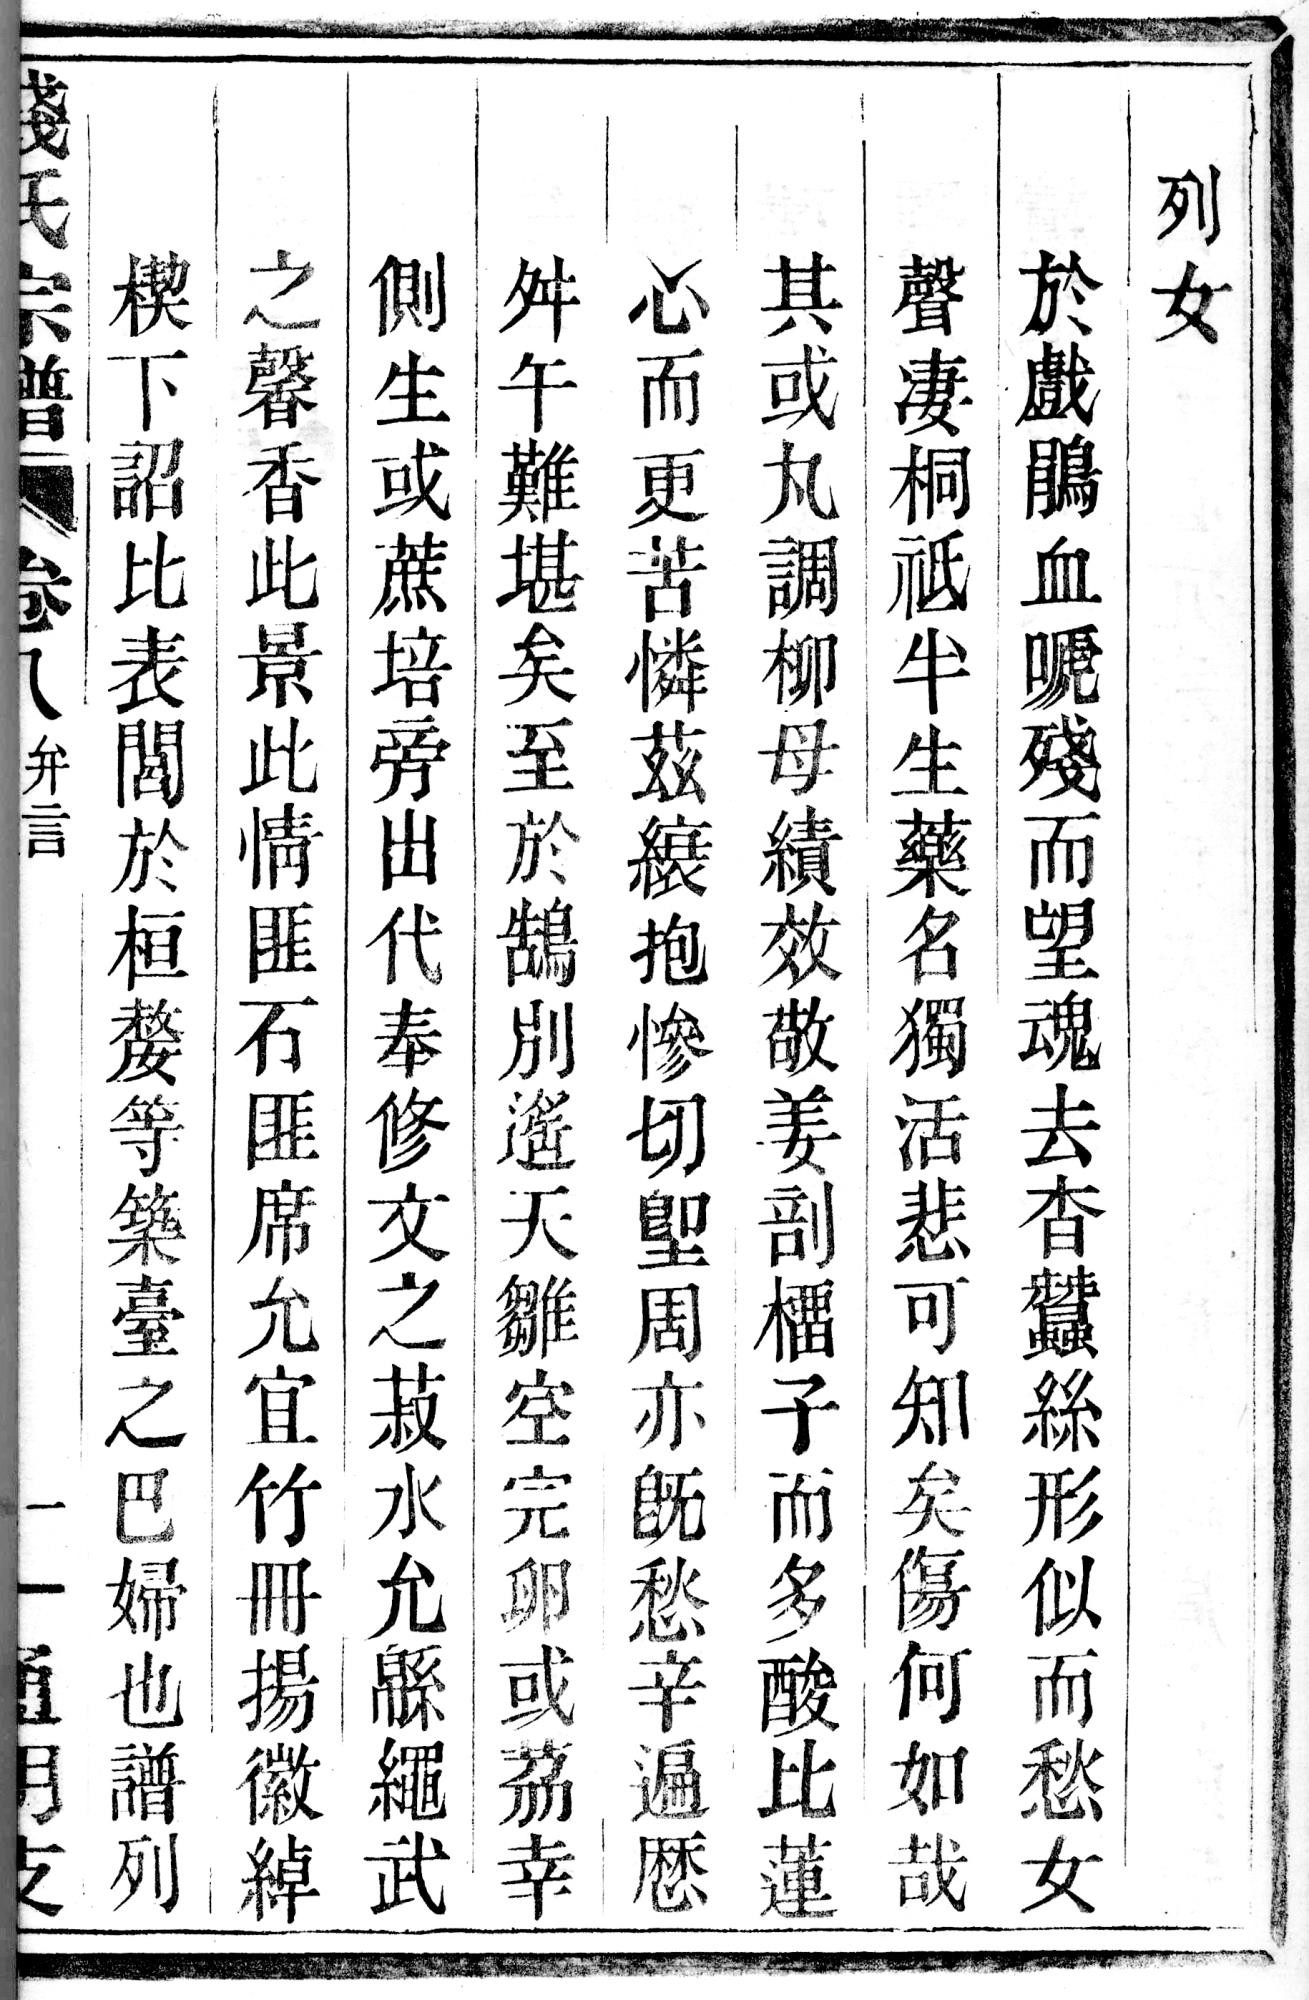 列女
於戲鵑血嗁殘而望魂去杳蠶絲形似而愁女
聲凄桐祗半生藥名獨活悲可知矣傷何如哉
其或丸調柳母績效敬姜剖橊子而多酸比蓮
心而更苦憐茲繈抱慘切堲周亦旣愁辛遍歷
舛午難堪矣至於鵠別遙天雛空完卵或荔幸
側生或蔗培旁出代奉修文之菽水允緜繩武
之馨香此景此情匪石匪席允宜竹冊揚徽綽
楔下詔比表閭於桓嫠等築臺之巴婦也譜列
錢氏宗譜 卷八 弁言 一 通明支